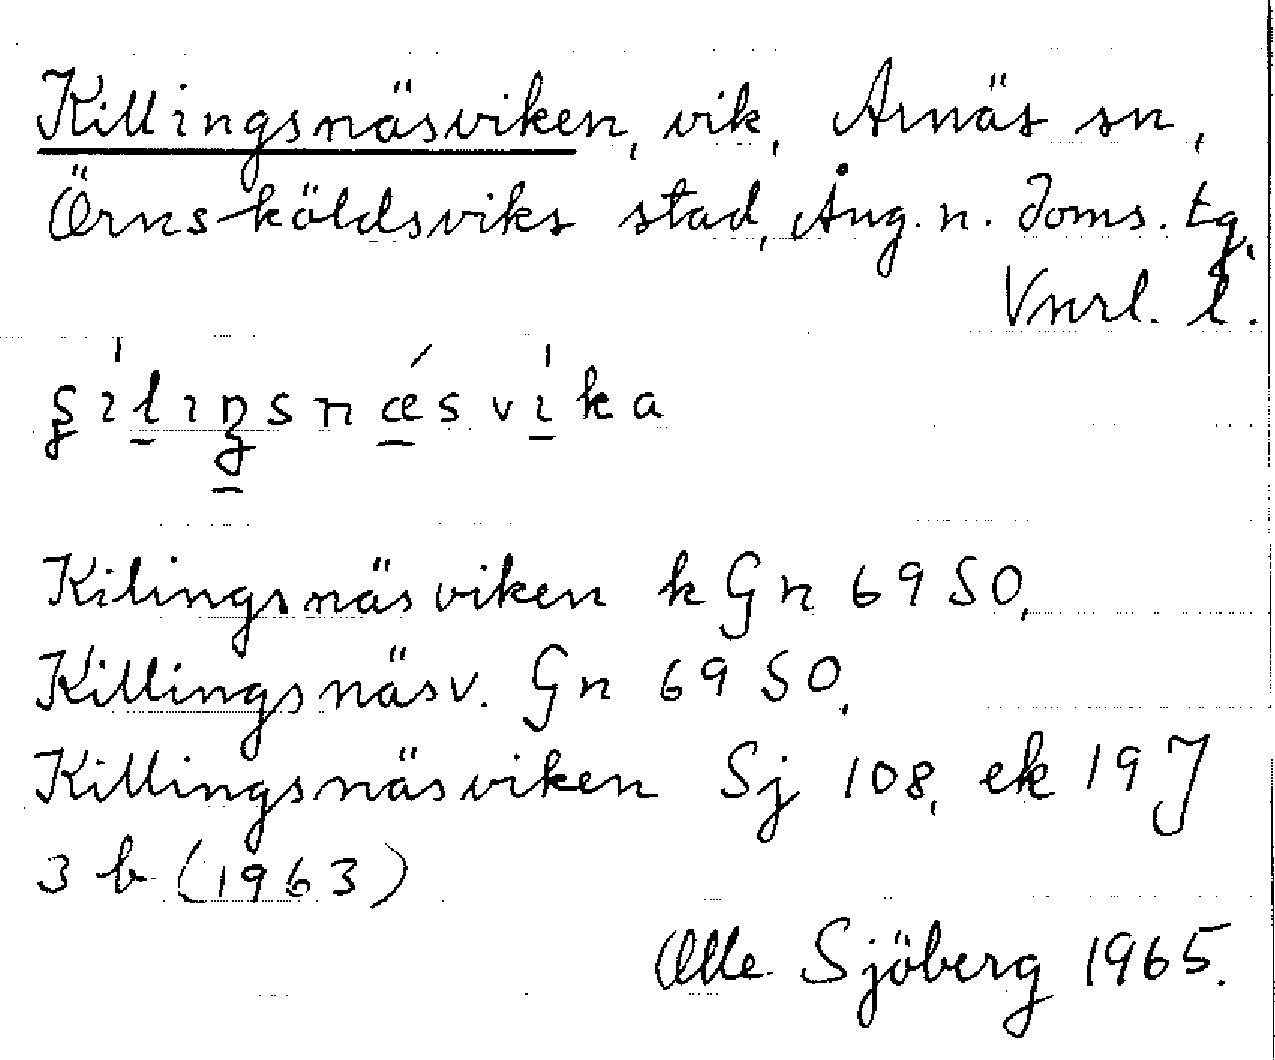 Killingsnäsviken, vik, Arnäs sn,
Örnsköldsviks stad, Ång. n. Doms. tg,
Vnrl. l.
Kilingsnäsviken k Gn 69 SO,
Killingsnäsv. Gn 69 SO,
Killingsnäsviken Sj 108, ek 19 J
3 b (1963)
Olle Sjöberg 1965.